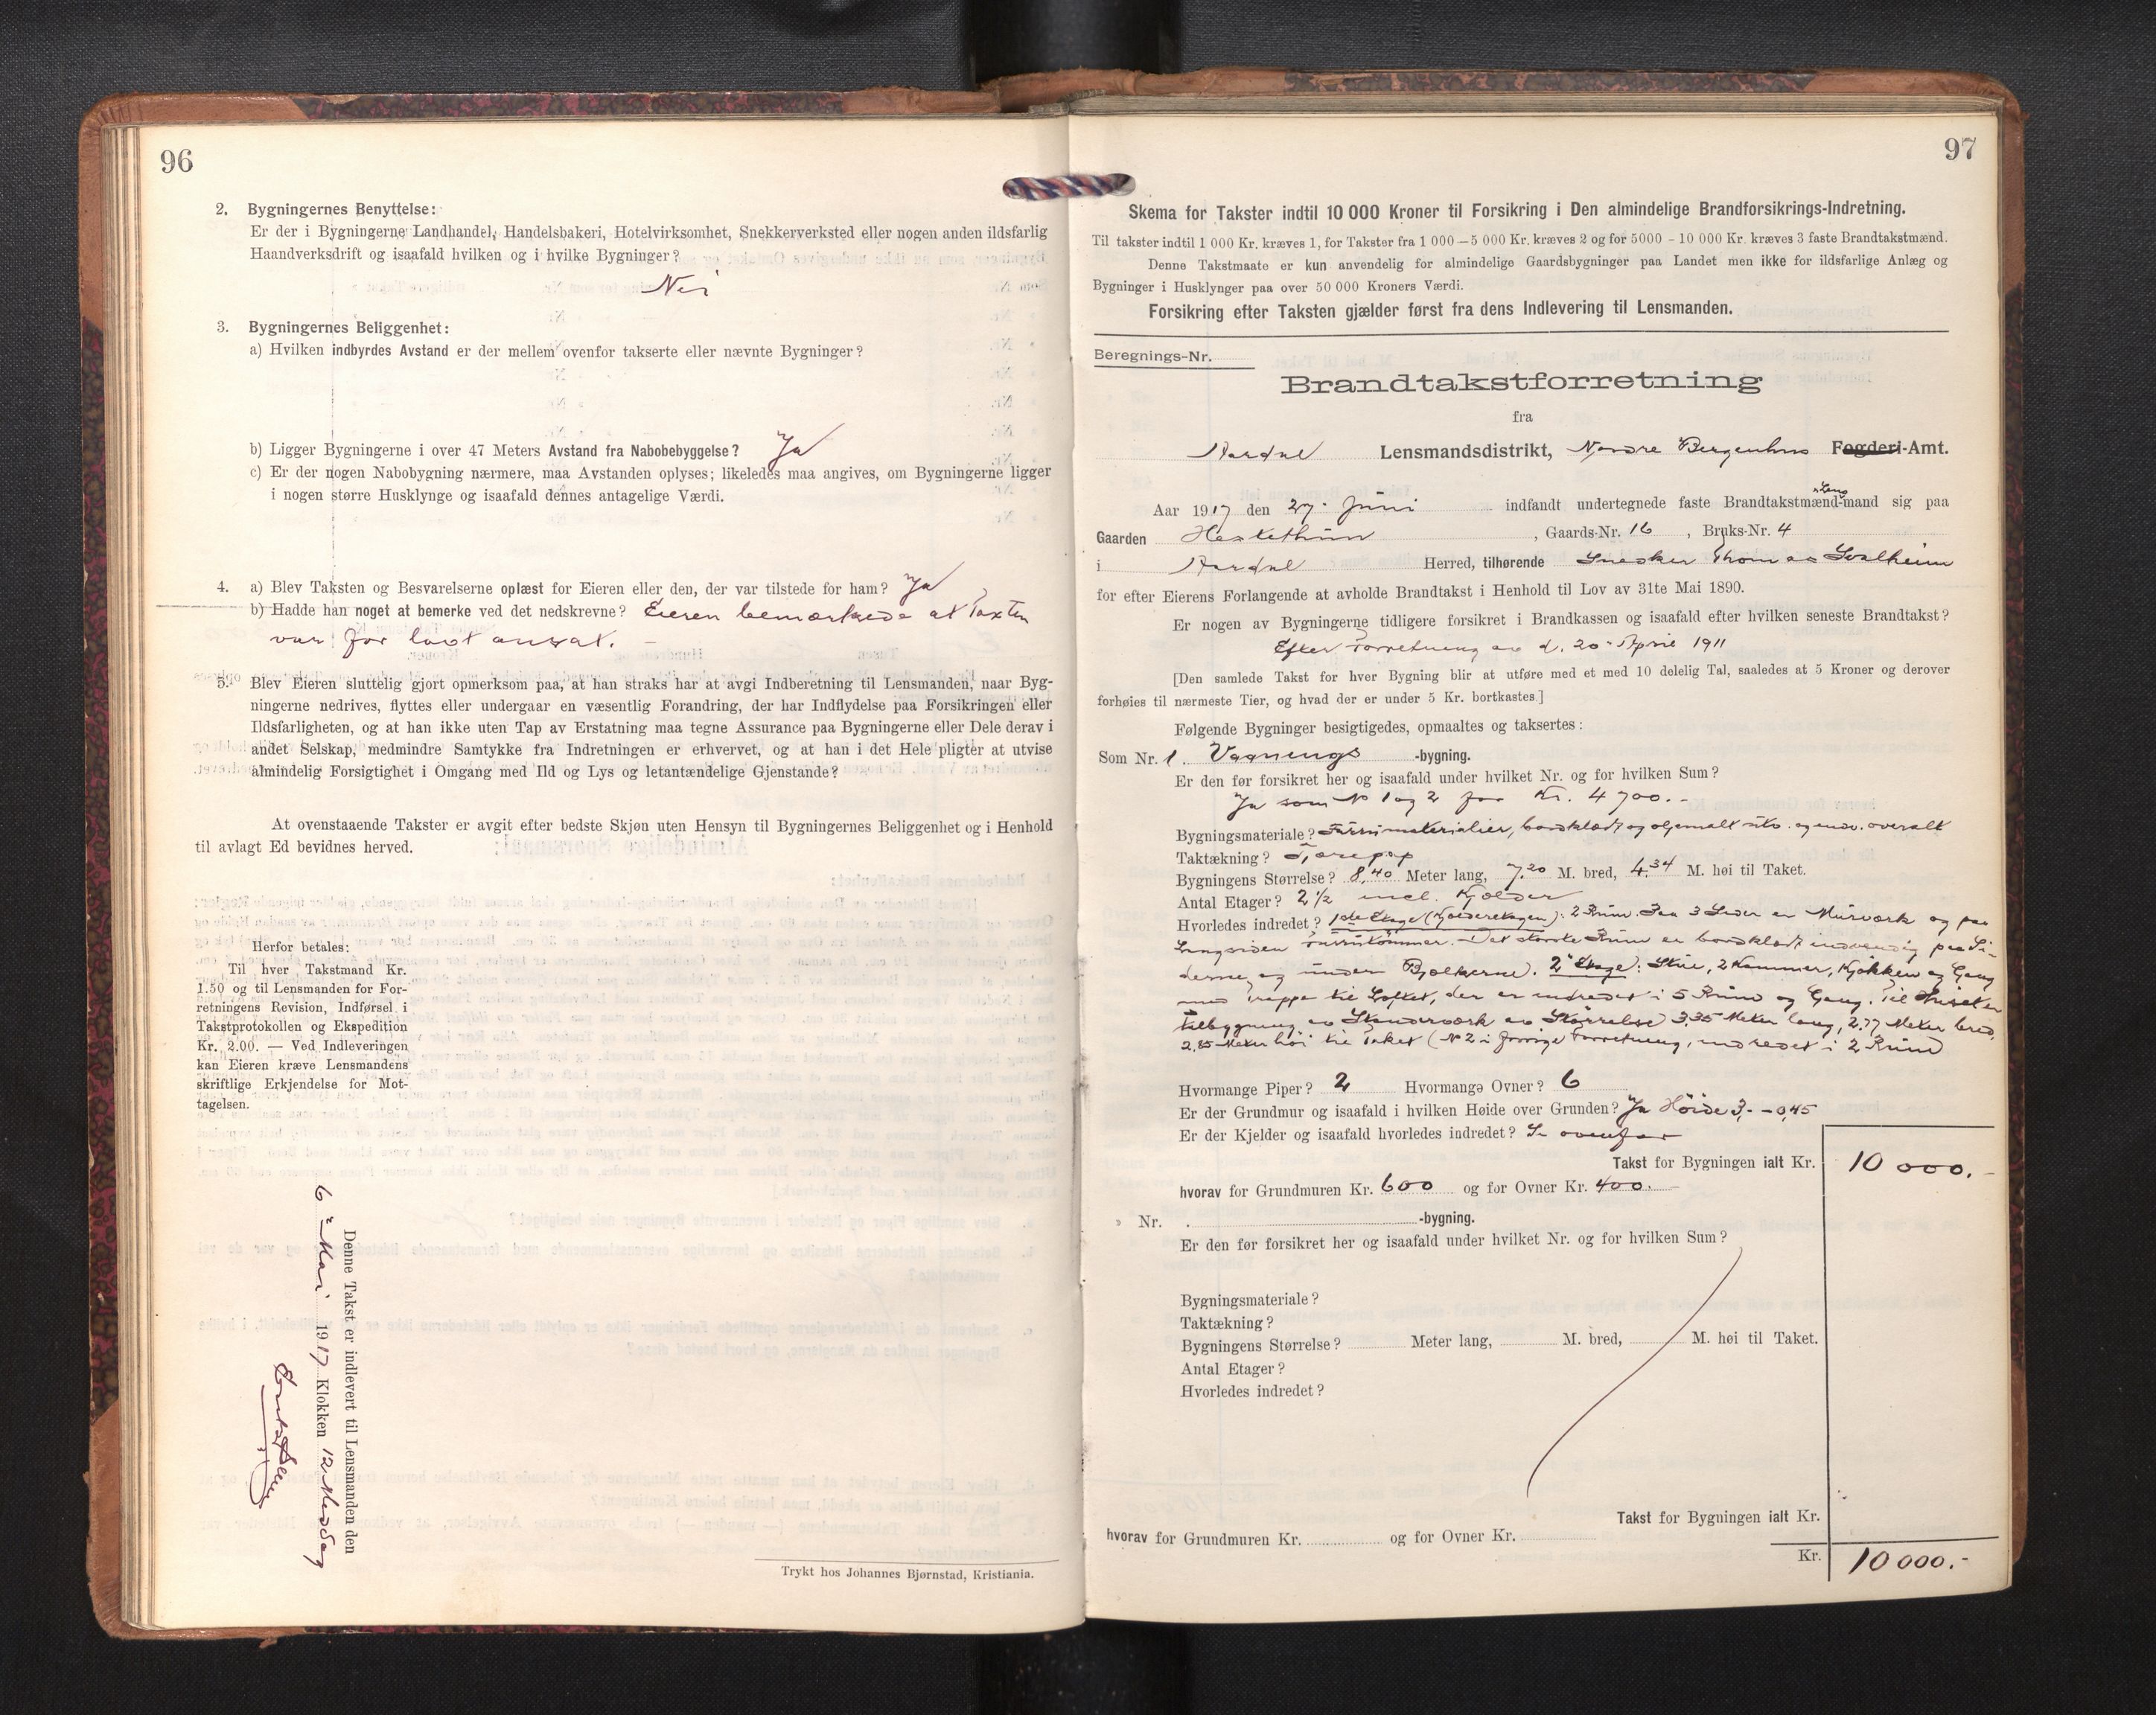 96
2. Bygningernes Benyttelse:
Er der i Bygningerne Landhandel, Handelsbakeri, Hotelvirksomhet, Snekkerverksted eller nogen anden ildsfarlig
Haandverksdrift og isaafald hvilken og i hvilke Bygninger?
Nei
3. Bygningernes Beliggenhet:
a) Hvilken indbyrdes Avstand er der mellem ovenfor takserte eller nævnte Bygninger?
b) Ligger Bygningerne i over 47 Meters Avstand fra Nabobebyggelse? Ja
c) Er der nogen Nabobygning nærmere, maa Avstanden oplyses; likeledes maa angives, om Bygningerne ligger
i nogen større Husklynge og isaafald dennes antagelige Værdi.
4. a) Blev Taksten og Besvarelserne oplæst for Eieren eller den, der var tilstede for ham? Ja
b) Hadde han noget at bemerke ved det nedskrevne? Eieren bemærkede at Taxten
var for lavt ansat. —
5. Blev Eieren sluttelig gjort opmerksom paa, at han straks har at avgi Indberetning til Lensmanden, naar Byg-
ningerne nedrives, flyttes eller undergaar en væsentlig Forandring, der har Indflydelse paa Forsikringen eller
Ildsfarligheten, og at han ikke uten Tap av Erstatning maa tegne Assurance paa Bygningerne eller Dele derav i
andet Selskap, medmindre Samtykke fra Indretningen er erhvervet, og at han i det Hele pligter at utvise
almindelig Forsigtighet i Omgang med Ild og Lys og letantændelige Gjenstande?
At ovenstaaende Takster er avgit efter bedste Skjøn uten Hensyn til Bygningernes Beliggenhet og i Henhold
til avlagt Ed bevidnes herved.
Herfor betales:
Til hver Takstmand Kr.
1.50 og til Lensmanden for For-
retningens Revision, Indførsel i
Takstprotokollen og Ekspedition
Kr. 2.00. — Ved Indleveringen
kan Eieren kræve Lensmandens
skriftlige Erkjendelse for Mot-
tagelsen.
Denne Takst er indlevert til Lensmanden den
6 Mai 1917 Klokken 12 Middag
Trykt hos Johannes Bjørnstad, Kristiania.
97
Skema for Takster indtil 10 000 Kroner til Forsikring i Den almindelige Brandforsikrings-Indretning.
Til takster indtil 1 000 Kr. kræves 1, for Takster fra 1 000 — 5 000 Kr. kræves 2 og for 5000 - 10 000 Kr. kræves 3 faste Brandtakstmænd.
Denne Takstmaate er kun anvendelig for almindelige Gaardsbygninger paa Landet men ikke for ildsfarlige Anlæg og
Bygninger i Husklynger paa over 50 000 Kroners Værdi.
Forsikring efter Taksten gjælder først fra dens Indlevering til Lensmanden.
Beregnings-Nr.
Brandtakstforretning
fra
Aardal Lensmandsdistrikt, Nordre Bergenhus Fogderi-Amt.
Aar 1917 den 27. Juni indfandt undertegnede faste Brandtakstmænd-mand sig paa
Gaarden Hestethun, Gaards-Nr. 16, Bruks-Nr. 4
i Aardal Herred, tilhørende Snedker Thomas Svalheim
for efter Eierens Forlangende at avholde Brandtakst i Henhold til Lov av 31te Mai 1890.
Er nogen av Bygningerne tidligere forsikret i Brandkassen og isaafald efter hvilken seneste Brandtakst?
Efter Forretning av d. 20 April 1911
[Den samlede Takst for hver Bygning blir at utføre med et med 10 delelig Tal, saaledes at 5 Kroner og derover
forhøies til nærmeste Tier, og hvad der er under 5 Kr. bortkastes.]
Følgende Bygninger besigtigedes, opmaaltes og taksertes:
Som Nr. 1. Vaanings-bygning.
Er den før forsikret her og isaafald under hvilket Nr. og for hvilken Sum?
Ja som No 1 og 2 for Kr. 4700.-
Bygningsmateriale? Furrumaterialier, bordklædt og oljemalt utv. og indv. overalt
Taktækning? Tjærepap
Bygningens Størrelse? 8,40 Meter lang, 7,20 M. bred, 4,34 M. høi til Taket.
Antal Etager? 2 1/2 incl. Kjælder
Hvorledes indredet? 1ste Etage (Kjælderetagen): 2 Rum. Paa 3 Sider er Murværk og paa
Langsiden Furrutømmer. Det største Rum er bordklædt indvendig paa Si-
derne og under Bjælkerne). 2' Etage: Stue, 2 Kammer, Kjøkken og Gang
med Trappe til Loftet, der er indredet i 5 Rum og Gang. Til Huset er
tilbygning av Stenderværk av Størrelse 3,35 Meter lang, 2,77 Meter bred,
2,85 Meter høi til Taket (No 2 i forrige Forretning, indredet i 2 Rum)
Hvormange Piper? 2 Hvormange Ovner? 6
Er der Grundmur og isaafald i hvilken Høide over Grunden? Ja Høide 3,- - 0,45
Er der Kjelder og isaafald hvorledes indredet? Se ovenfor
Takst for Bygningen ialt Kr. 10 000.-
hvorav for Grundmuren Kr. 600 og for Ovner Kr. 400.-
» Nr. -bygning.
Er den før forsikret her og isaafald under hvilket Nr. og for hvilken Sum?
Bygningsmateriale?
Taktækning?
Bygningens Størrelse? Meter lang, M. bred, M. høi til Taket.
Antal Etager?
Hvorledes indredet?
Takst for Bygningen ialt Kr.
hvorav for Grundmuren Kr. og for Ovner Kr.
Kr. 10 000.-